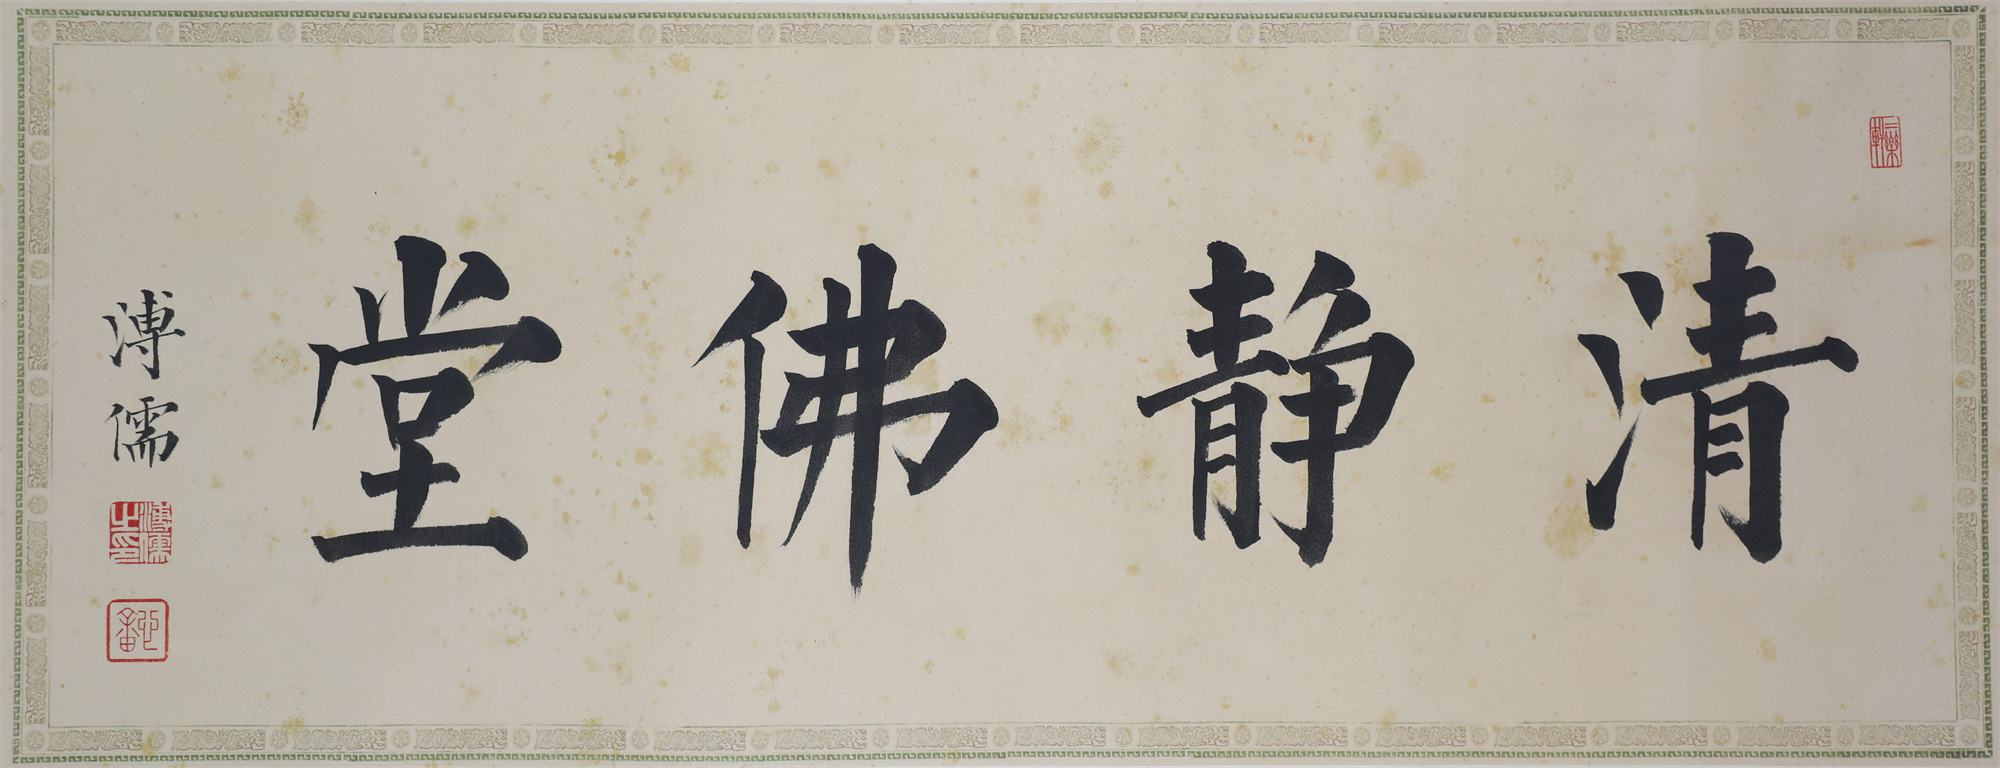 清静佛堂
溥儒
溥儒之印